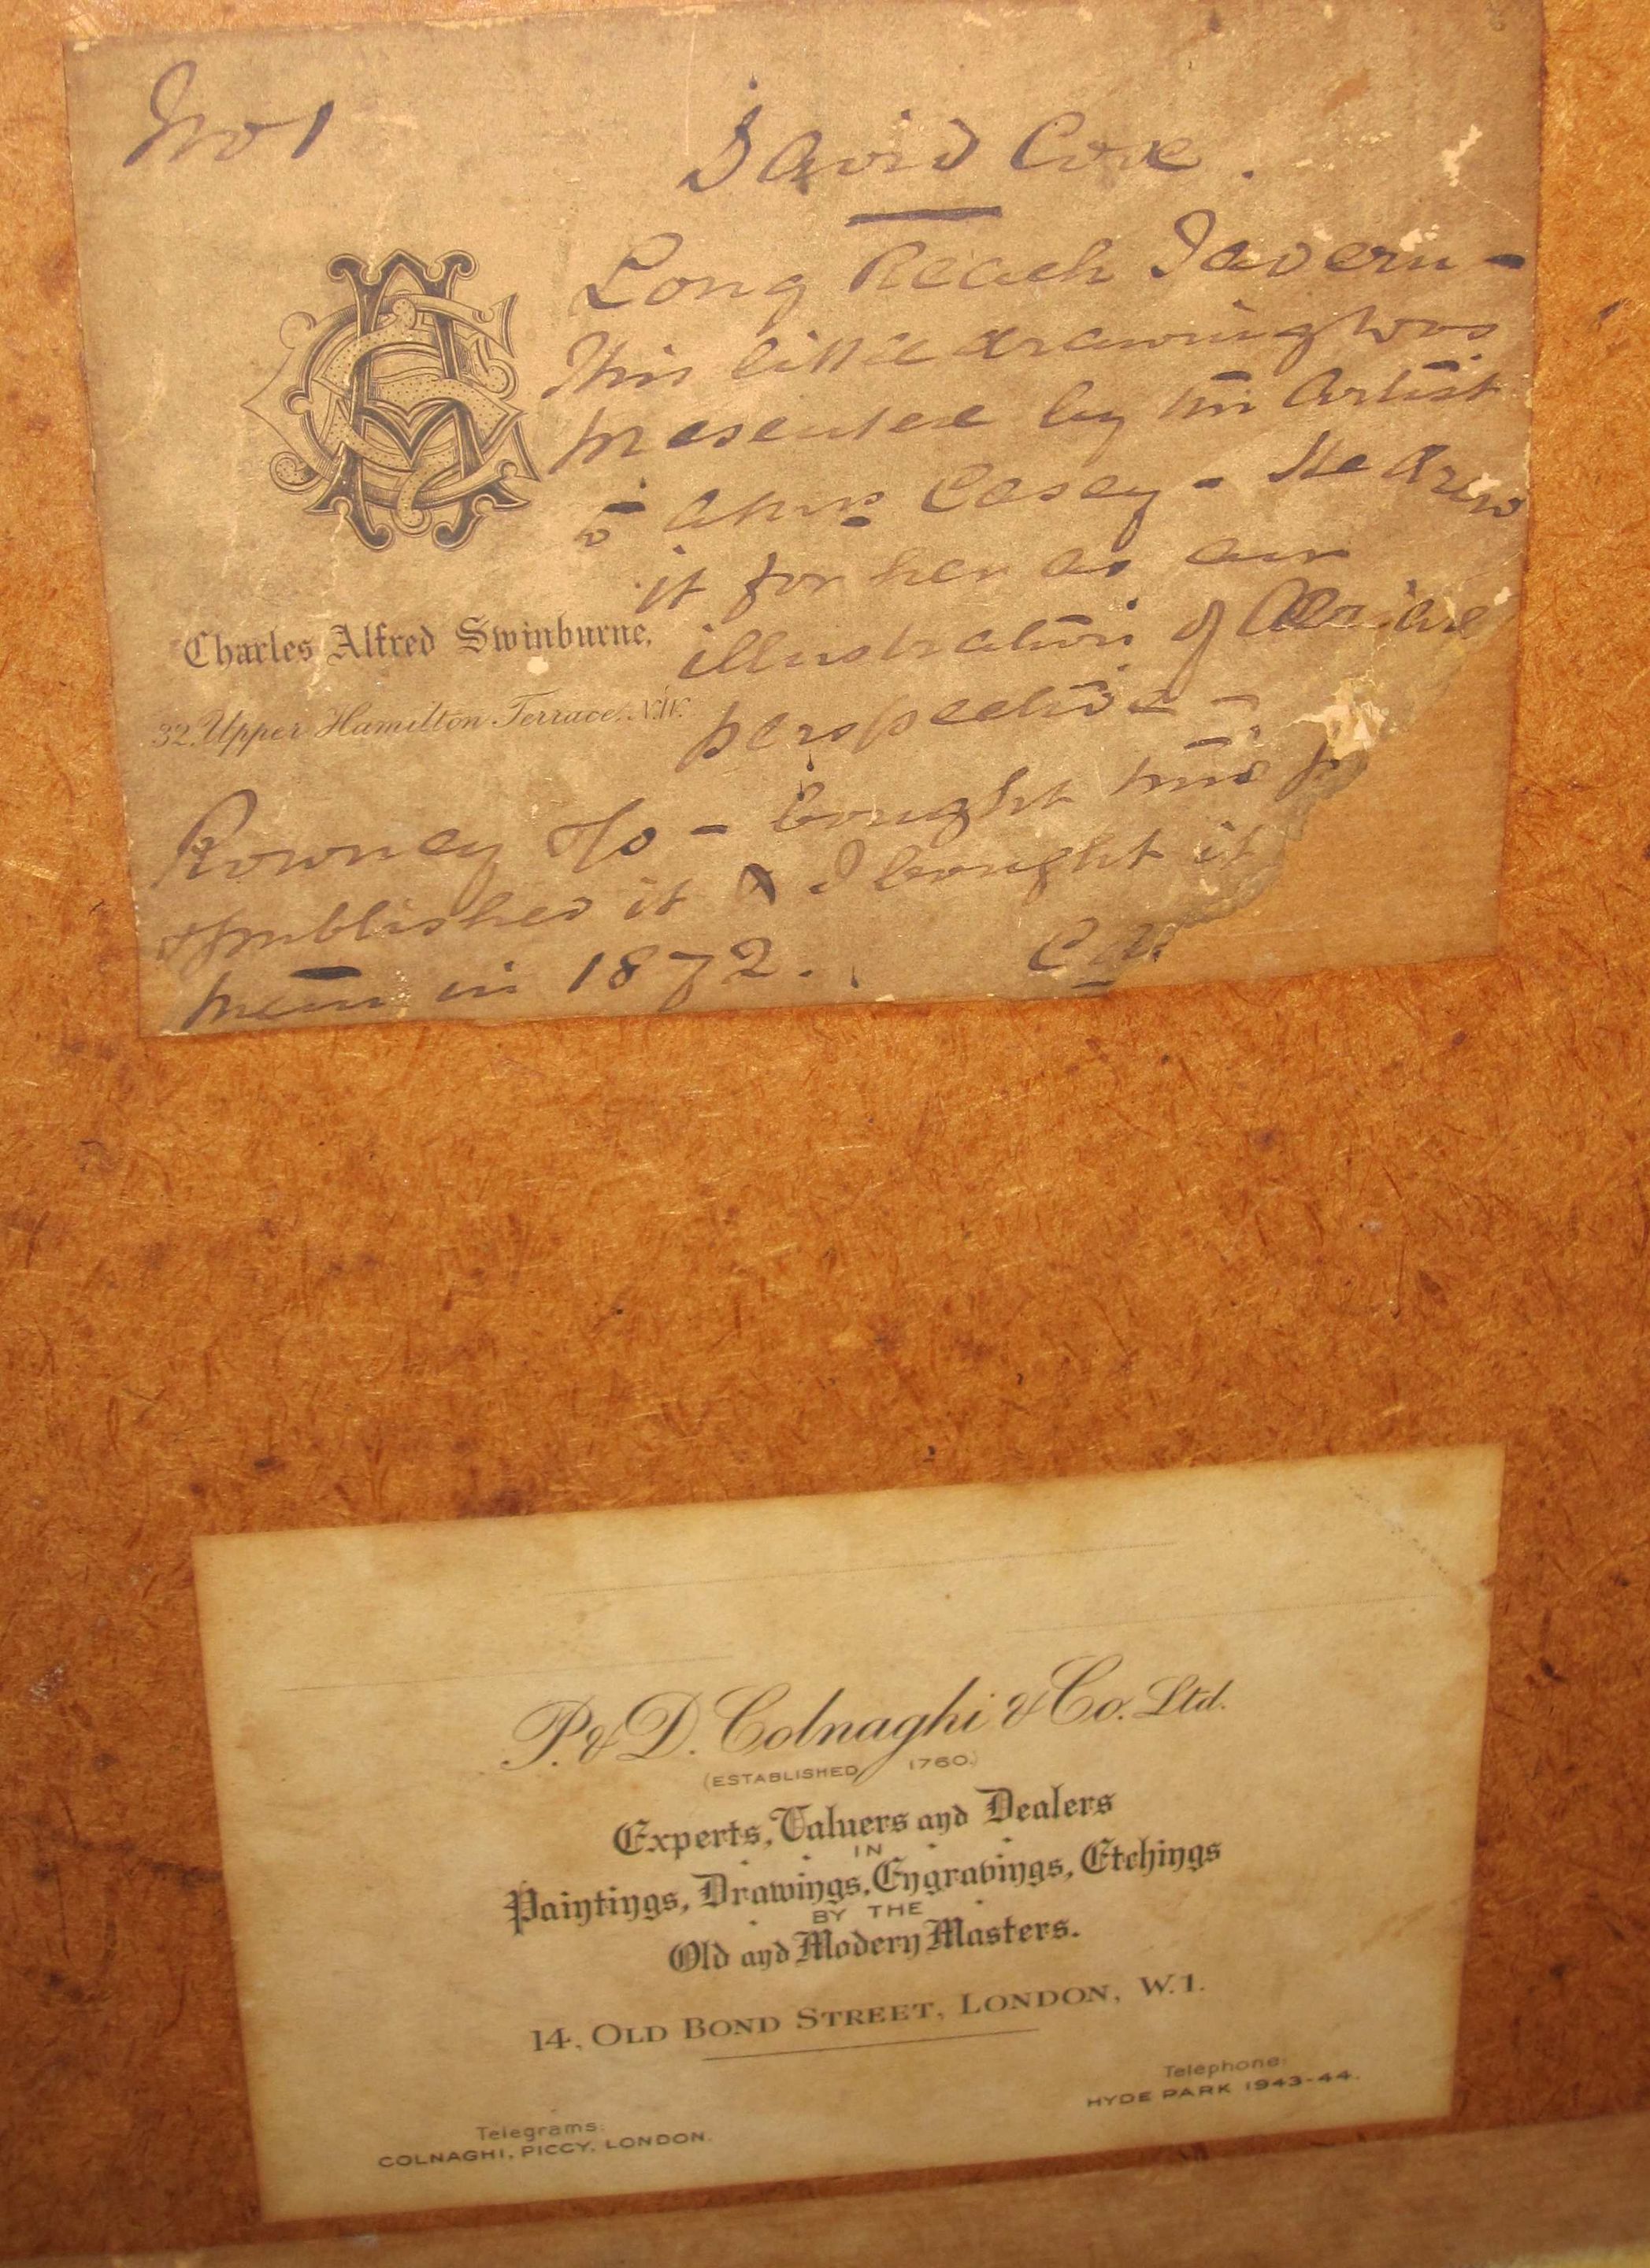 No 1
David Cox.
Long Reach Tavern -
This little drawing was
presented by the Artist
to Mrs Casey - He drew
it for her as an
illustration of Aerial
perspective -
Charles Alfred Swinburne,
32, Upper Hamilton Terrace, N.W.
Rowney & Co - bought this
& published it & I bought it
in 1872.
P. & D. Colnaghi & Co. Ltd.
(ESTABLISHED 1760.)
Experts, Valuers and Dealers
IN
Paintings, Drawings, Engravings, Etchings
BY THE
Old and Modern Masters.
14, OLD BOND STREET, LONDON, W.1.
Telephone:
HYDE PARK 1943-44.
Telegrams:
COLNAGHI, PICCY, LONDON.